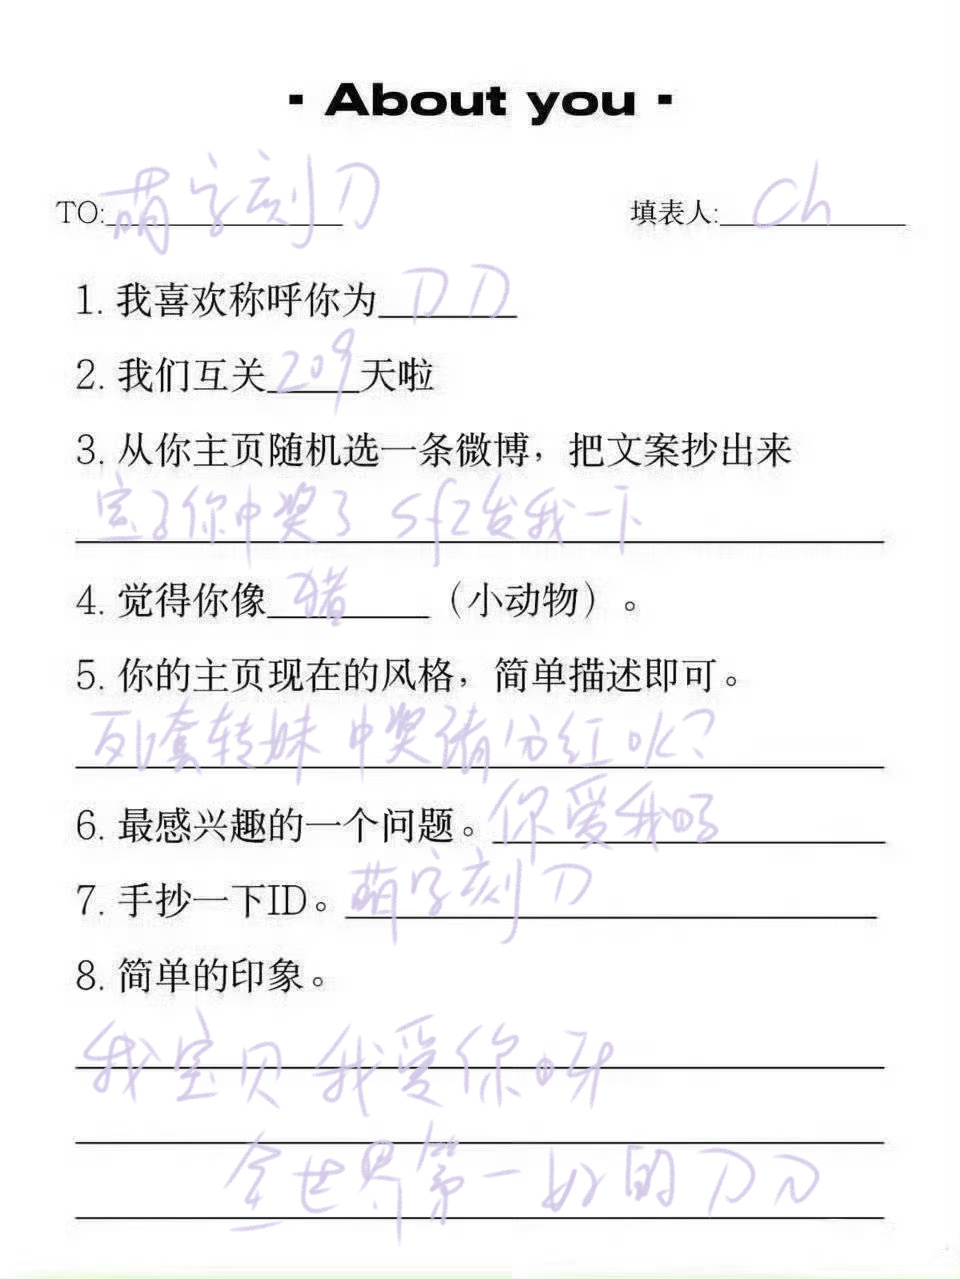 - About you -
TO: 萌字刻刀 填表人: Ch
1. 我喜欢称呼你为刀刀
2. 我们互关209天啦
3. 从你主页随机选一条微博，把文案抄出来
宝了你中奖了 sfz发我一下
4. 觉得你像猪（小动物）。
5. 你的主页现在的风格，简单描述即可。
套转妹 中奖请分红ok?
6. 最感兴趣的一个问题。你爱我吗
7. 手抄一下ID。萌字刻刀
8. 简单的印象。
我宝贝 我爱你呀
全世界第一好的刀刀